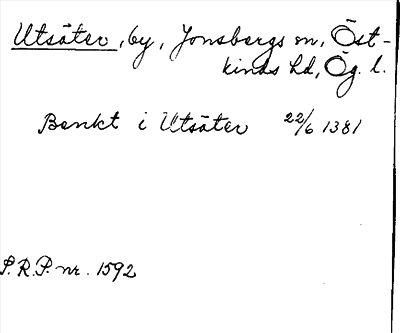 Utsäter, by, Jonsbergs sn, Öst-
kinds hd, Ög. l.
Benkt i Utsäter 22/6 1381
S.R.P. nr. 1592